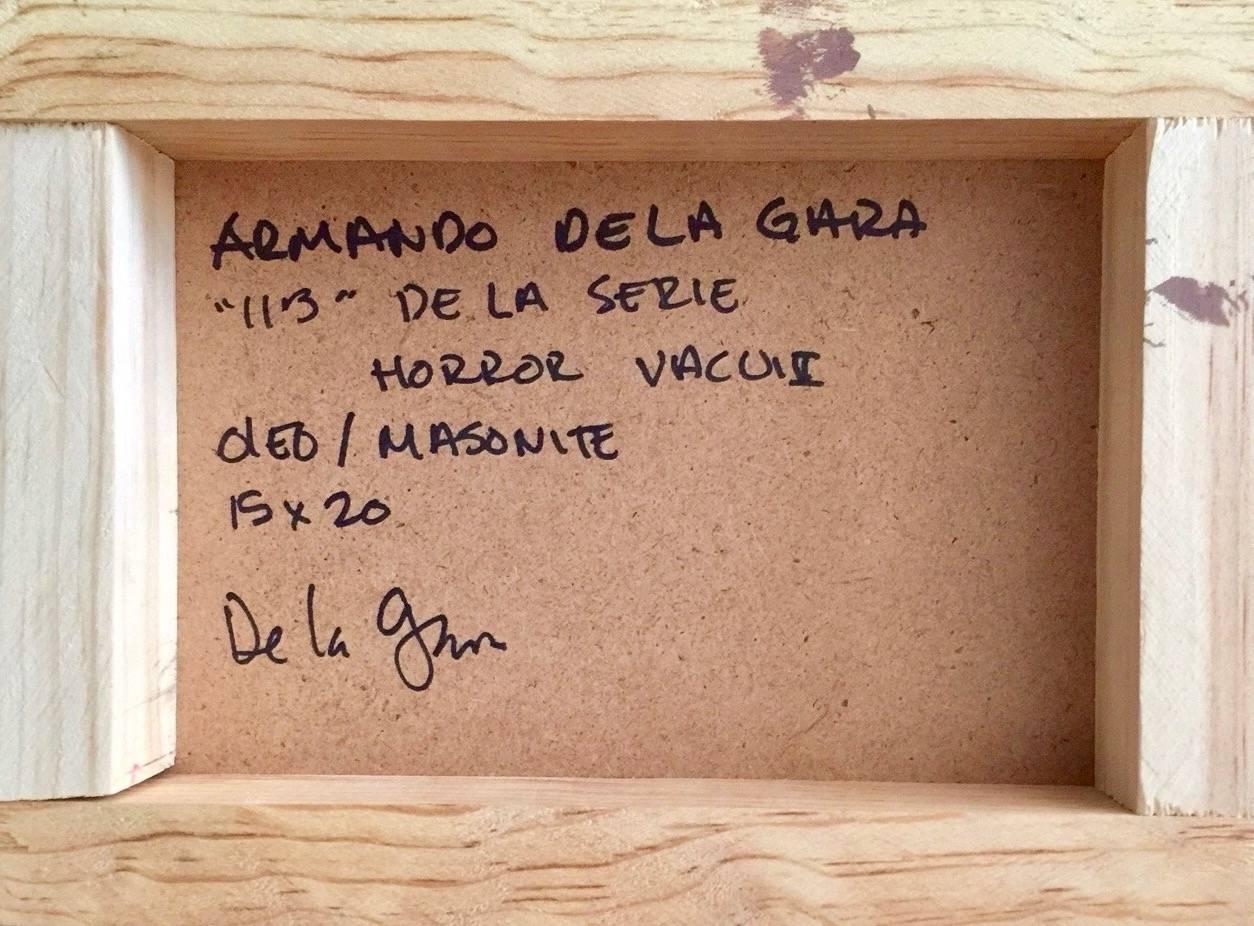 ARMANDO DE LA GARZA
"113" DE LA SERIE
HORROR VACUI II
OLEO / MASONITE
15 x 20
De la Garza